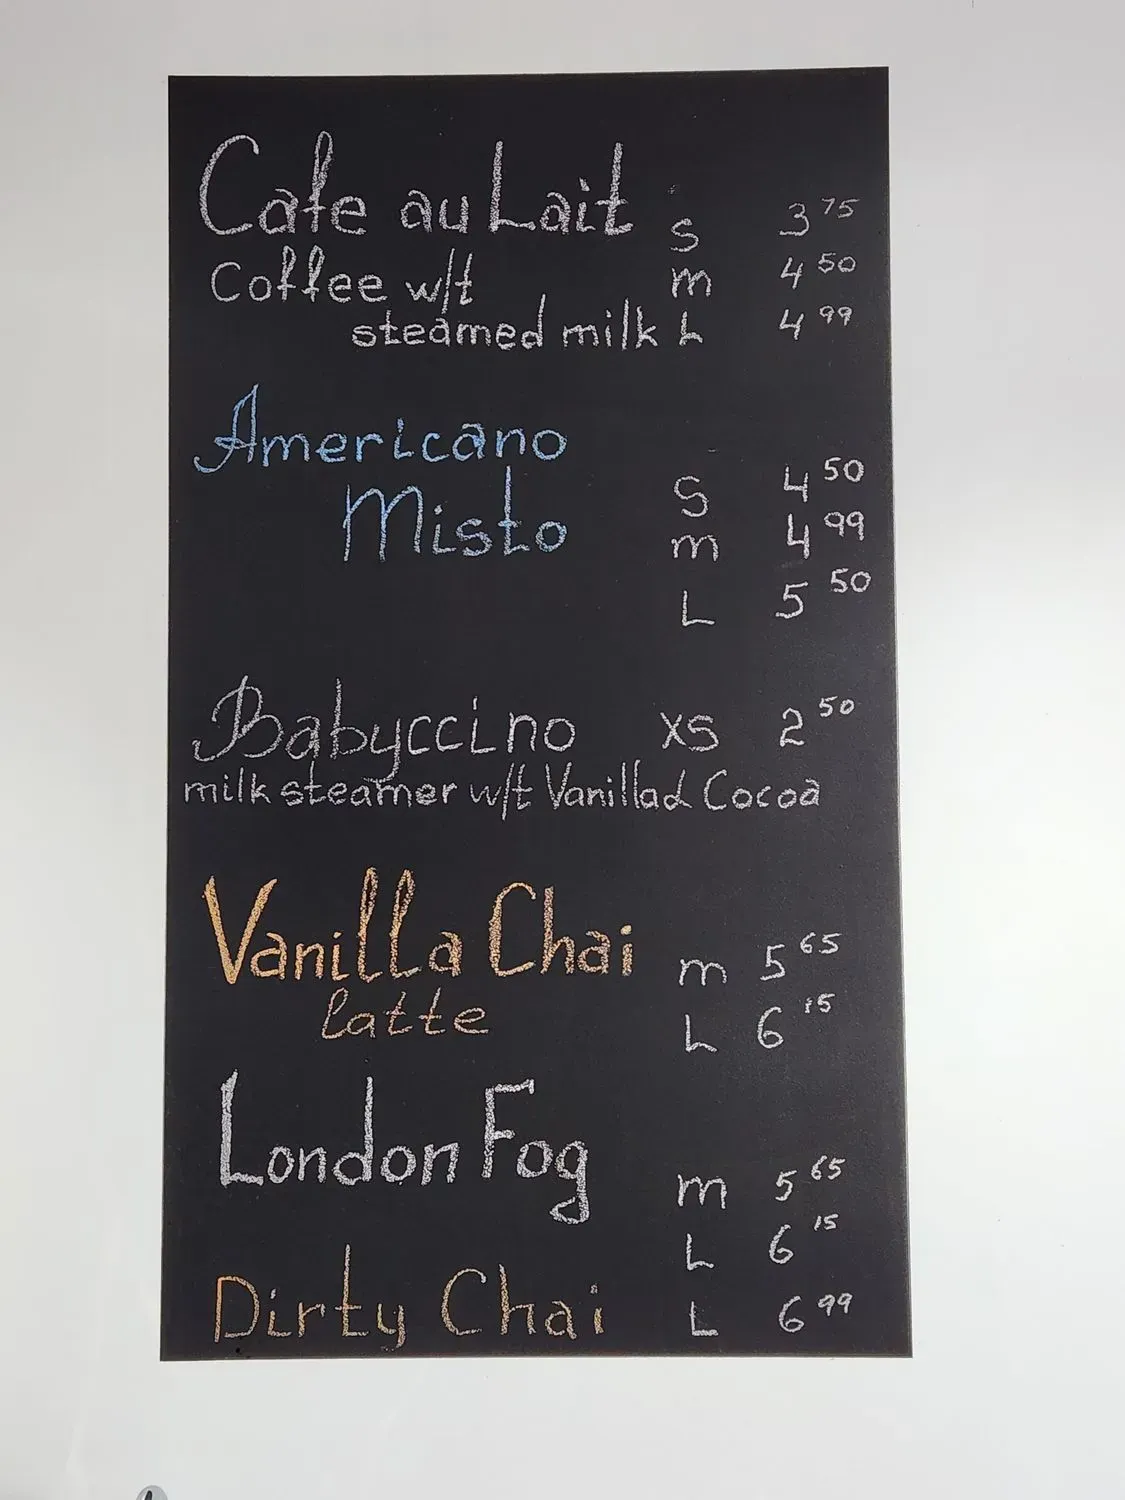 Cafe au Lait S 3 75
Coffee w/t m 4 50
steamed milk L 4 99
Americano
Misto S 4 50
m 4 99
L 5 50
Babyccino XS 2 50
milk steamer w/t Vanilla & Cocoa
Vanilla Chai m 5 65
latte L 6 15
London Fog m 5 65
L 6 15
Dirty Chai L 6 99